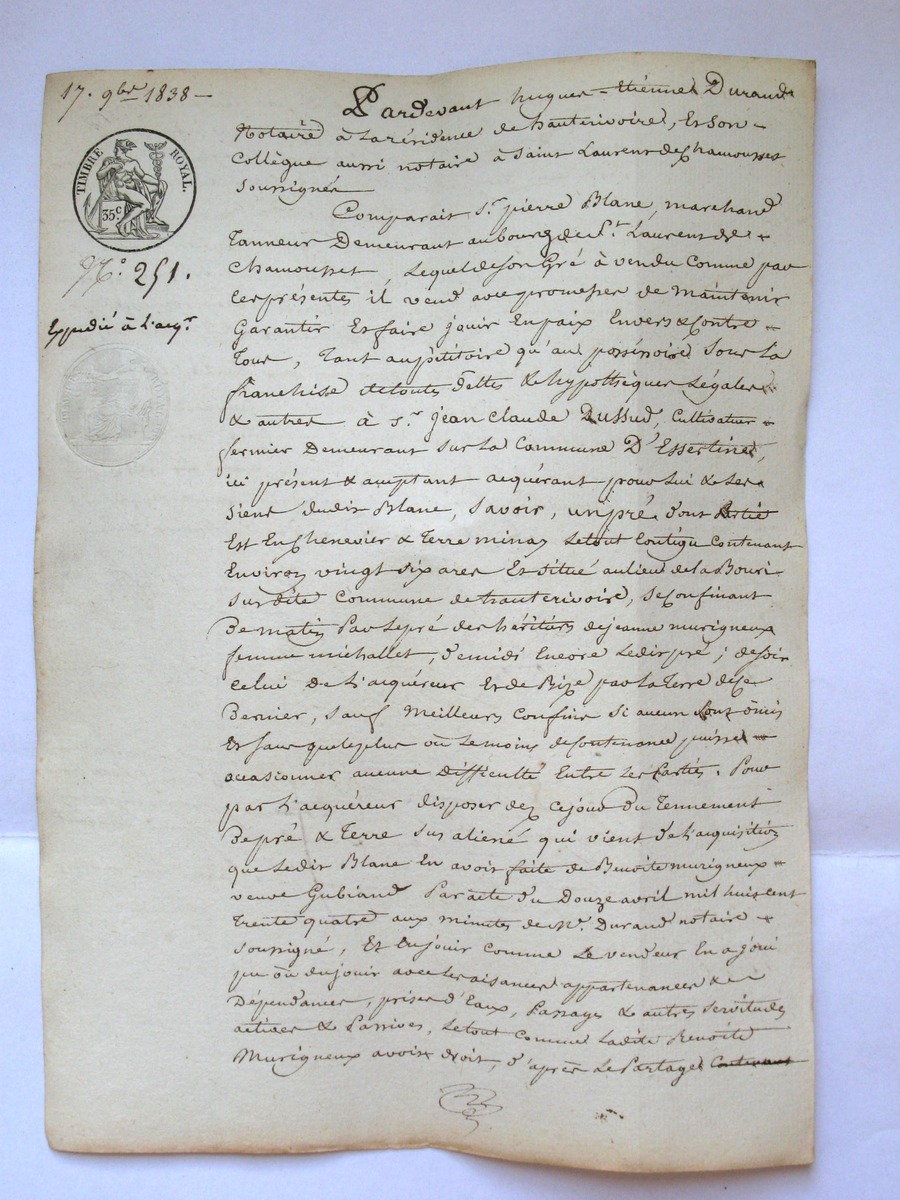 17. 9bre 1838 -
TIMBRE ROYAL.
35c
No. 251.
Expédié à l'acqr
Pardevant hugues - Etienne Durand
Notaire à la résidence de hauterivoire, Et son -
Collègue aussi notaire à Saint Laurent de chamousset
soussignés
Comparait sr. pierre Blanc, marchand
Tanneur Demeurant au bourg de St. Laurent de
chamousset, Lequel de son Gré à vendu Comme par
les présentes il vend avec promesse de maintenir
Garantir Et faire jouir En paix Envers & Contre -
Tous, tant au pétitoire qu'au possessoire sous la
franchise de toutes dettes & hypothèques Légales
& autres à sr. jean Claude Dussud, Cultivateur -
fermier Demeurant sur la Commune D'Essertines,
ici présent & acceptant acquérant pour Lui & Les
siens dudit Blanc, savoir, un pré dont Partie
Est En Chenevier & Terre Le tout Contigu Contenant
Environ vingt six ares Et situé au lieu de la Bouri
sus dite Commune de hauterivoire, se Confinant
De matin Par Le pré des héritiers de jeanne murigneux
femme michallet, de midi Encore Ledit pré ; de soir
celui De L'acquéreur Et de Bize par La Terre de Ce
Dernier, sauf Meilleurs Confins si aucun sont omis
Et sans que le plus où Le moins de Contenance puisse
occasionner aucune difficulté Entre Les Parties. Pour
par L'acquéreur disposer dez Ce jour du Tennement
De pré & Terre sus aliené qui vient de L'acquisition
que Ledit Blanc En avoit faite de Benoite murigneux -
veuve Gubiand Par acte du Douze avril mil huit cent
trente quatre aux minutes de Me. Durand notaire -
soussigné, Et En jouir Comme Le vendeur En a joui
pu où du jouir avec Les aisances appartenances & -
Dépendances, prises d'Eaux, Passages & autres servitudes
actives & Passives, Le tout Comme Ladite Benoite
Murigneux avoit droit, d'après Le Partage Contenant